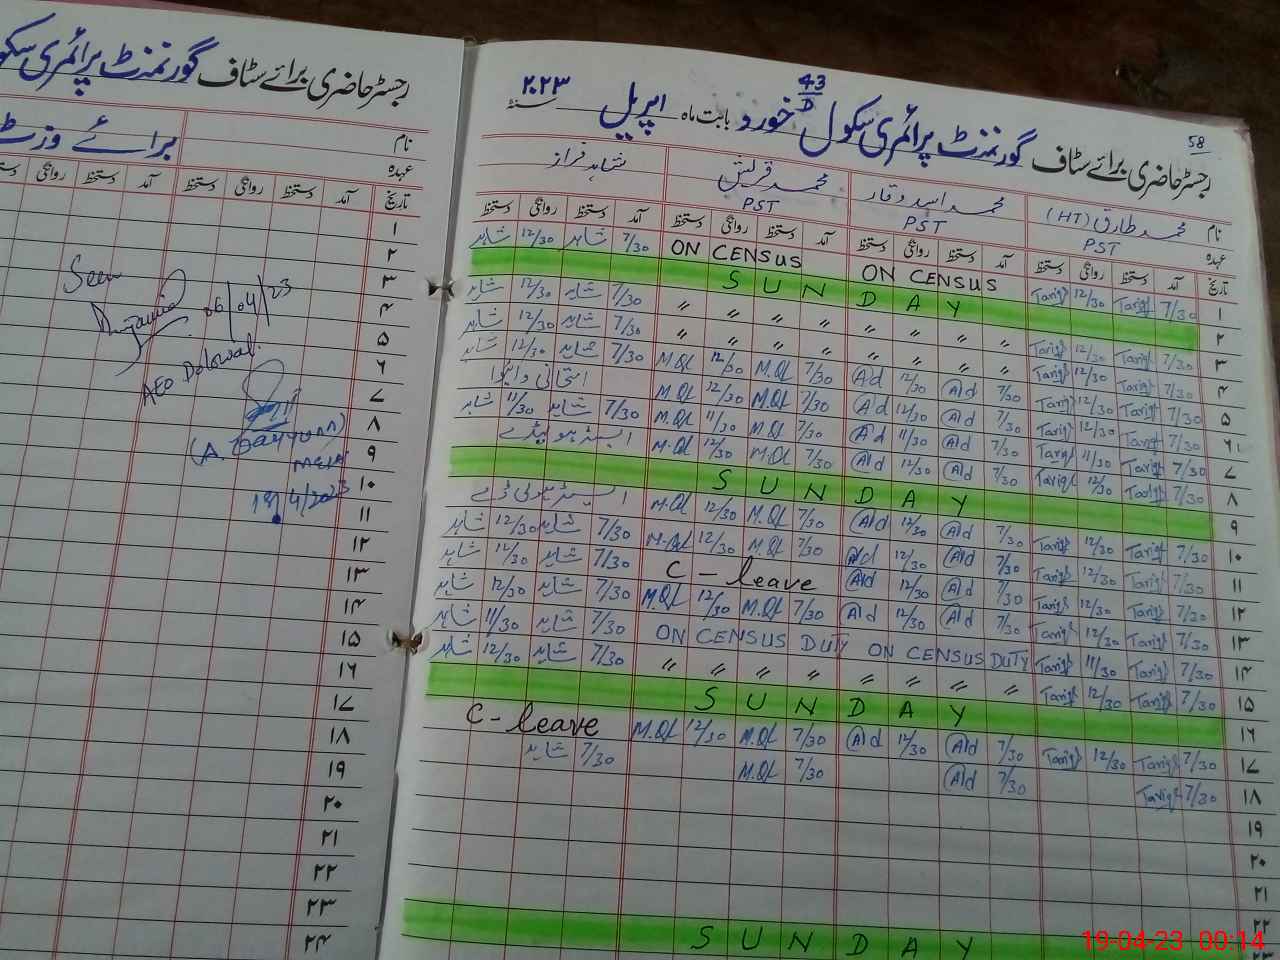 رجسٹر حاضری برائے سٹاف گورنمنٹ پرائمری سکو
برائے وزٹ
نام
عہدہ
تاریخ آمد دستخط روانگی دستخط آمد دستخط روانگی
۱
۲
۳
۴
۵
۶
۷
۸
۹
۱۰
۱۱
۱۲
۱۳
۱۴
۱۵
۱۶
۱۷
۱۸
۱۹
۲۰
۲۱
۲۲
۲۳
۲۴
Seen
06/04/23
AEO Dolowal.
(A. Qayyum)
MEA
19/4/2023
58
رجسٹر حاضری برائے سٹاف گورنمنٹ پرائمری سکول 43/D خورد بابت ماہ اپریل سنہ ۲۰۲۳
نام محمد طارق (HT) محمد اسد وقار محمد قریش شاہد فراز
عہدہ PST PST PST
تاریخ آمد دستخط روانگی دستخط آمد دستخط روانگی دستخط آمد دستخط روانگی دستخط آمد دستخط روانگی دستخط
۱ 7/30 Tariq 12/30 Tariq ON CENSUS ON CENSUS 7/30 شاہد 12/30 شاہد
۲ SUNDAY
۳ 7/30 Tariq 12/30 Tariq 〃 〃 〃 〃 〃 〃 〃 〃 7/30 شاہد 12/30 شاہد
۴ 7/30 Tariq 12/30 Tariq 〃 〃 〃 〃 〃 〃 〃 〃 7/30 شاہد 12/30 شاہد
۵ 7/30 Tariq 12/30 Tariq 7/30 Ad 12/30 Ad 7/30 M.Ql 12/30 M.Ql 7/30 شاہد 12/30 شاہد
۶ 7/30 Tariq 12/30 Tariq 7/30 Ad 12/30 Ad 7/30 M.Ql 12/30 M.Ql
۷ 7/30 Tariq 11/30 Tariq 7/30 Ad 11/30 Ad 7/30 M.Ql 11/30 M.Ql 7/30 شاہد 11/30 شاہد
۸ 7/30 Tariq 12/30 Tariq 7/30 Ad 12/30 Ad 7/30 M.Ql 12/30 M.Ql
۹ SUNDAY
۱۰ 7/30 Tariq 12/30 Tariq 7/30 Ad 12/30 Ad 7/30 M.Ql 12/30 M.Ql
۱۱ 7/30 Tariq 12/30 Tariq 7/30 Ad 12/30 Ad 7/30 M.Ql 12/30 M.Ql 7/30 شاہد 12/30 شاہد
۱۲ 7/30 Tariq 12/30 Tariq 7/30 Ad 12/30 Ad C-leave 7/30 شاہد 12/30 شاہد
۱۳ 7/30 Tariq 12/30 Tariq 7/30 Ad 12/30 Ad 7/30 M.Ql 12/30 M.Ql 7/30 شاہد 12/30 شاہد
۱۴ 7/30 Tariq 11/30 Tariq ON CENSUS DUTY ON CENSUS DUTY 7/30 شاہد 11/30 شاہد
۱۵ 7/30 Tariq 12/30 Tariq 〃 〃 〃 〃 〃 〃 〃 〃 7/30 شاہد 12/30 شاہد
۱۶ SUNDAY
۱۷ 7/30 Tariq 12/30 Tariq 7/30 Ad 12/30 Ad 7/30 M.Ql 12/30 M.Ql C-leave
۱۸ 7/30 Tariq 7/30 Ad 7/30 M.Ql 7/30 شاہد
۱۹
۲۰
۲۱
۲۲
۲۳ SUNDAY
19-04-23 00:14